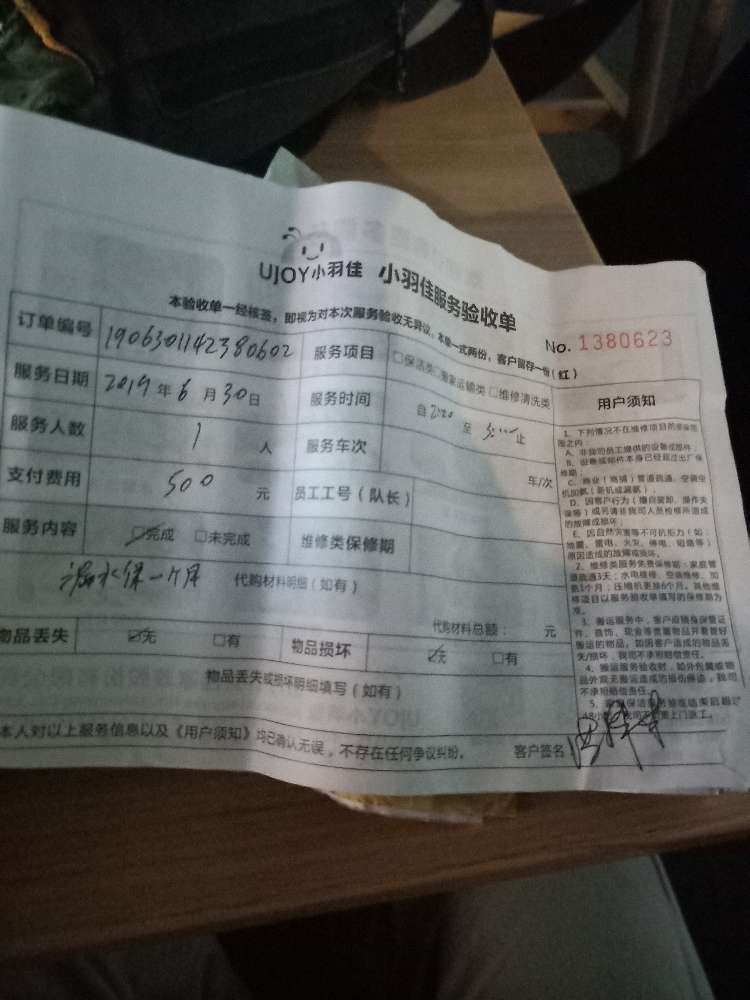 UJOY小羽佳 小羽佳服务验收单
本验收单一经核签，即视为对本次服务验收无异议，本单一式两份，客户留存一份（红）
No. 1380623
订单编号 1906301142380602 服务项目 □保洁类□搬家运输类 □维修清洗类
服务日期 2019年6月30日 服务时间 自 至 止
服务人数 1 人 服务车次 车/次
支付费用 500 元 员工工号（队长）
服务内容 ☑完成 □未完成 维修类保修期
漏水保一个月 代购材料明细（如有）
代购材料总额： 元
物品丢失 ☑无 □有 物品损坏 ☑无 □有
物品丢失或损坏明细填写（如有）
本人对以上服务信息以及《用户须知》均已确认无误，不存在任何争议纠纷。 客户签名
用户须知
1、下列情况不在维修项目的保保范
围之内：
A、非我司员工提供的设备或部件；
B、设备或部件本身已经超过出厂保
修期；
C、商业（商铺）管道疏通、空调空
机加氟（新机或漏氟）；
D、因客户行为（擅自装卸、操作失
误等）或另请非我司人员检修所造成
的故障或损坏；
E、因自然灾害等不可抗拒力（如：
地震、雷电、火灾、停电、短路等）
原因造成的故障或损坏。
2、维修类服务免费保修期：家庭管
道疏通3天；水电维修、空调维修、加
氟1个月；压缩机更换6个月。其他维
修项目以服务验收单填写的保修期为
准。
3、搬运服务中，客户应随身保管证
件、首饰、现金等贵重物品并看管好
搬运的物品，如因客户造成的物品丢
失/损坏，我司不承担赔偿责任。
4、搬运服务验收时，如外包装或物
品外观无搬运造成的损伤情况，我司
不承担赔偿责任。